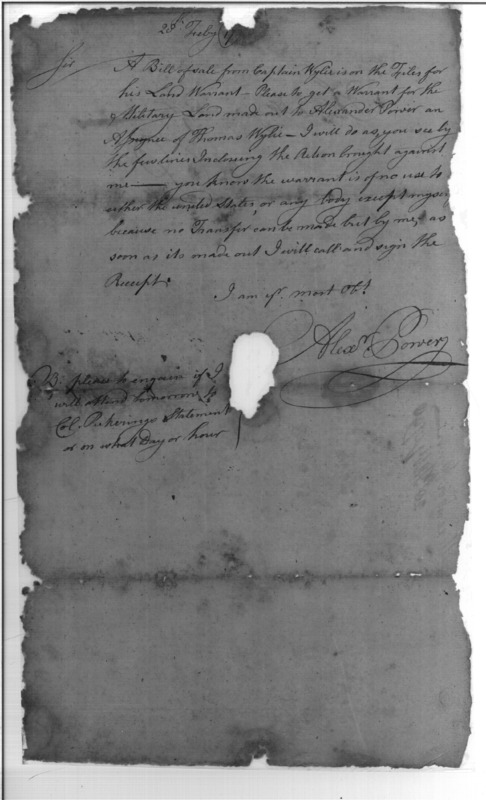 28th Feby 17
Sir
A Bill of sale from Captain Wylie is on the Files for
his Land Warrant - Please to get a Warrant for the
Military Land made out to Alexander Power an
Assignee of Thomas Wylie - I will do as you see by
the few lines Inclosing the Action brought against
me - you know the warrant is of no use to
either the united States or any body except myself
because no Transfer can be made but by me, as
soon as its made out I will call and sign the
Receipt.
I am yr. most Obt.
Alexr. Power
NB: please to enquire if I
will attend tomorrow
Col. Pickerings Statement
or on what Day or hour